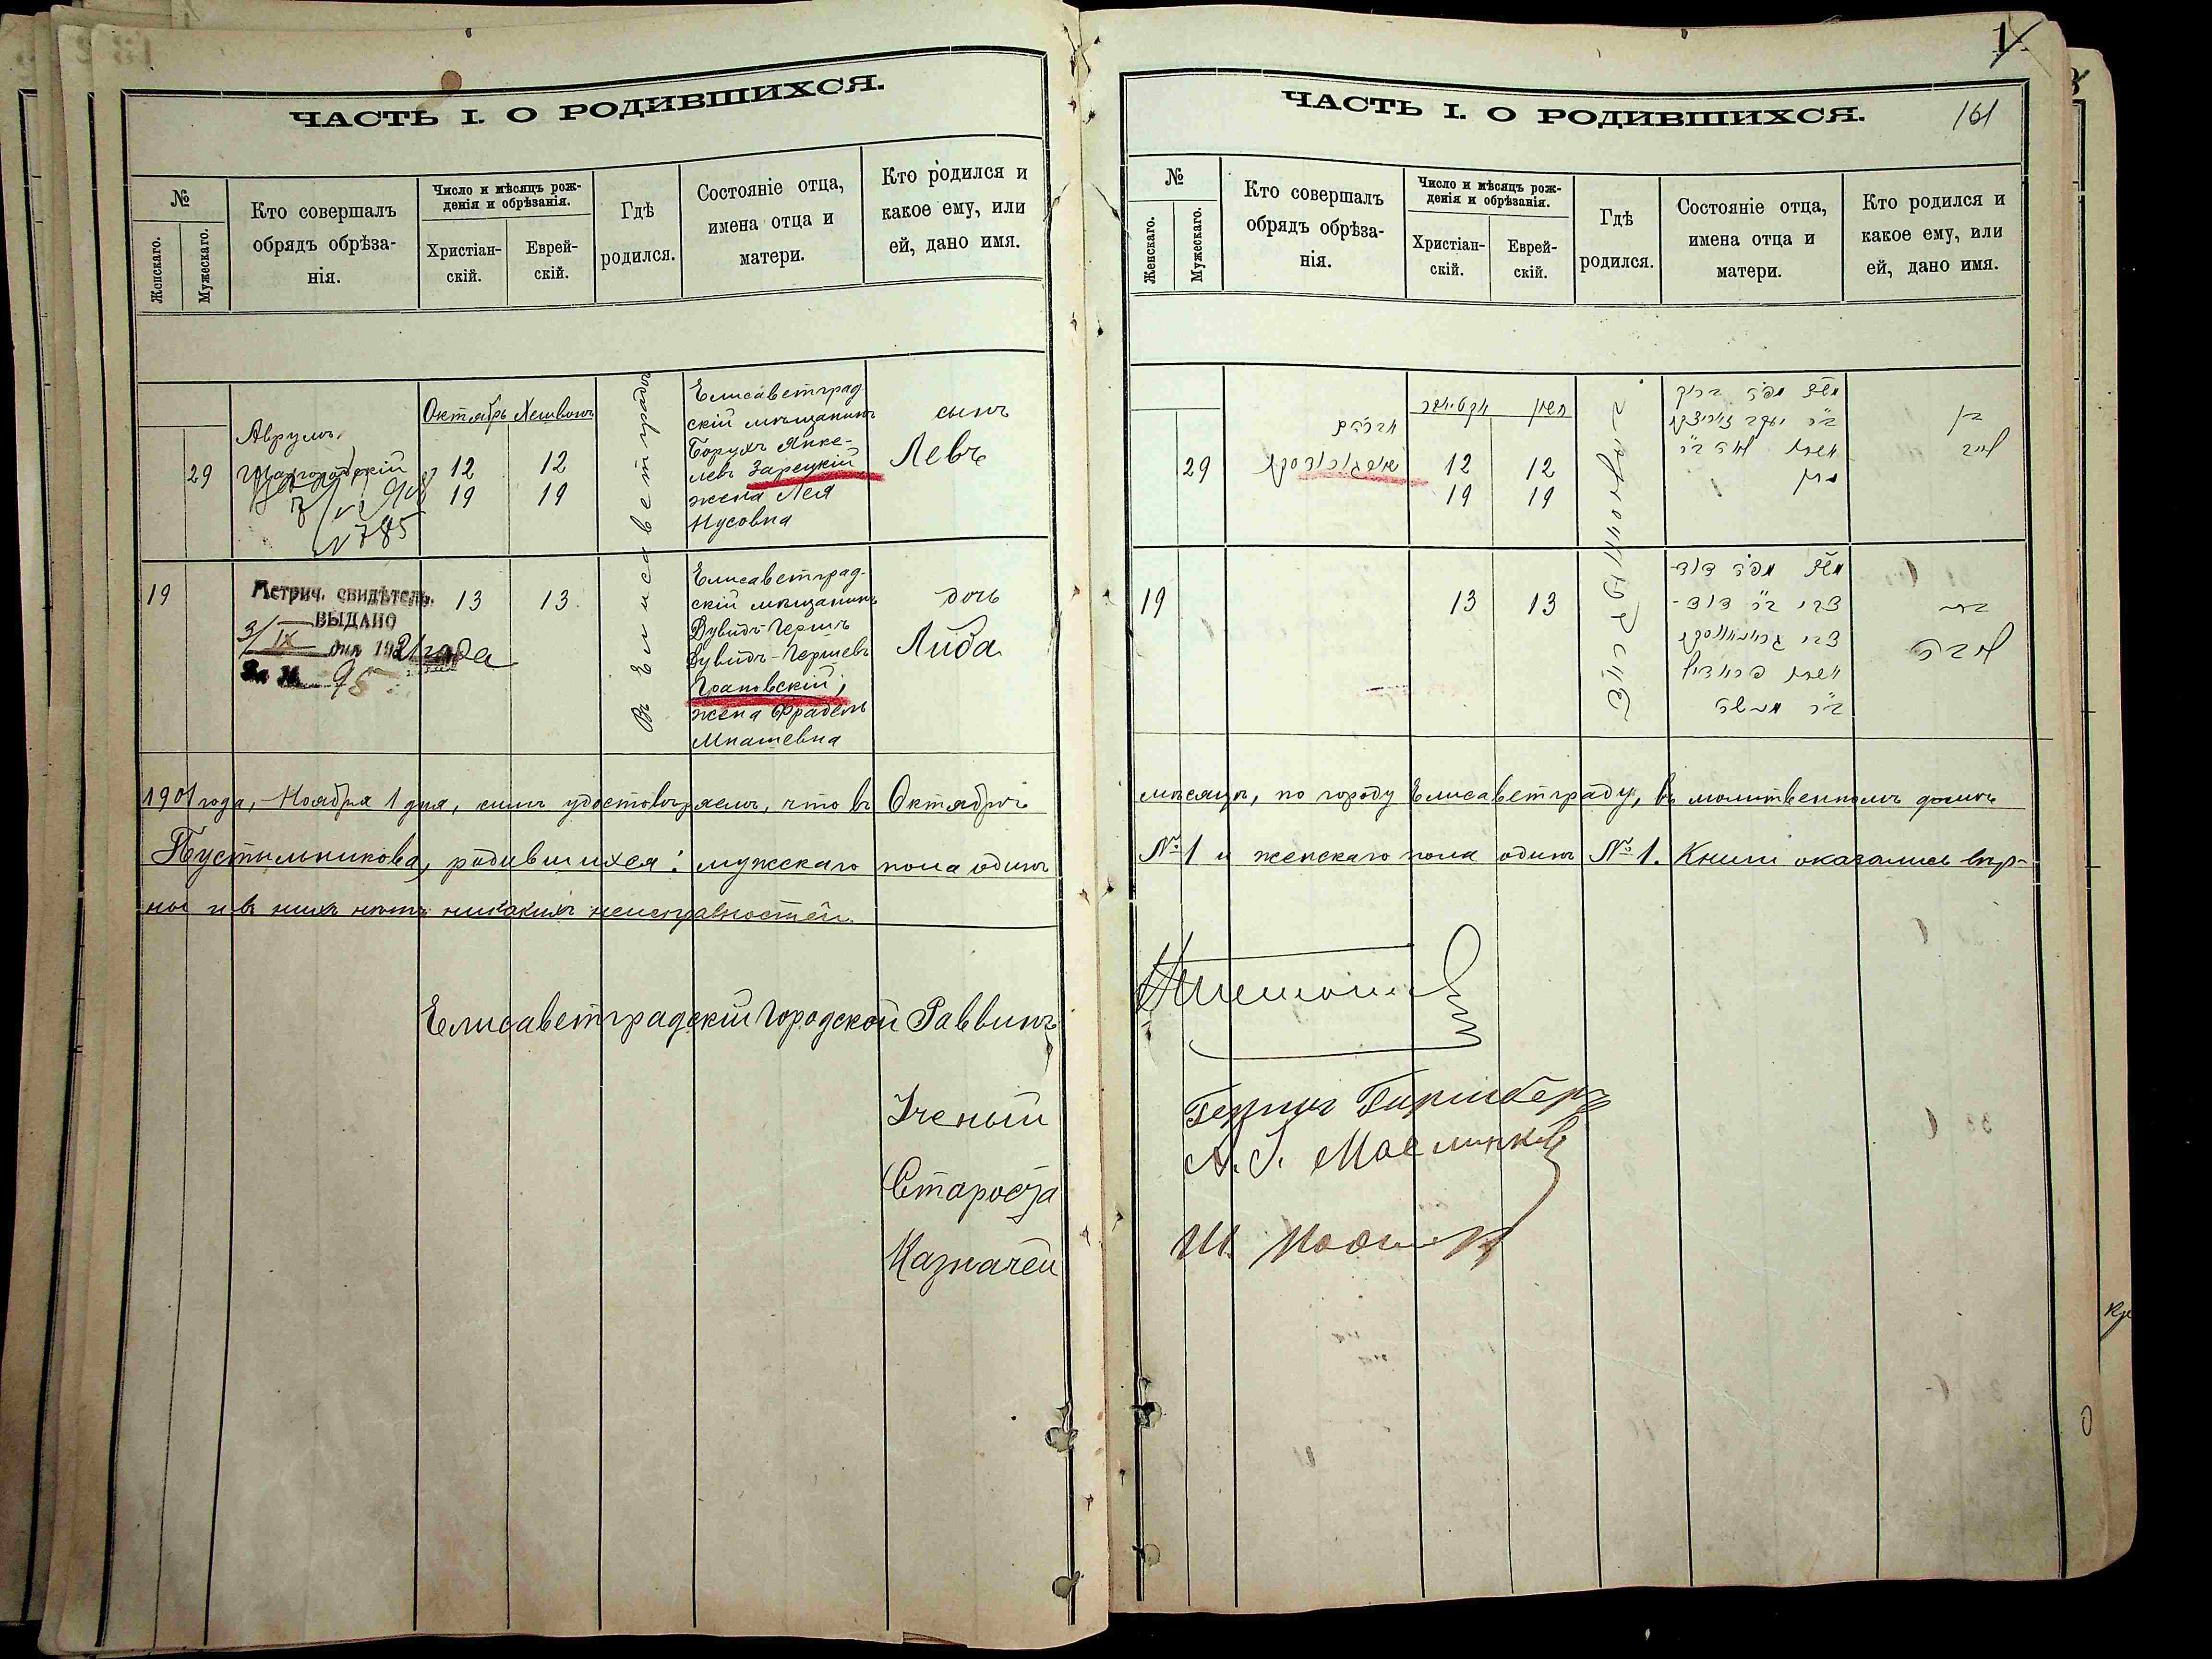 ЧАСТЬ I. О РОДИВШИХСЯ.
№
Женскаго.
Мужескаго.
Кто совершалъ
обрядъ обрѣза-
нія.
Число и мѣсяцъ рож-
денія и обрѣзанія.
Христіан-
скій.
Еврей-
скій.
Гдѣ
родился.
Состояніе отца,
имена отца и
матери.
Кто родился и
какое ему, или
ей, дано имя.
29
Аврумъ
Шаргородскій
785
Октябрь Хешвонъ
12 12
19 19
Въ Елисаветградѣ
Елисаветград-
скій мѣщанинъ
Борухъ Янке-
левъ Зарецкій,
жена Лея
Нусовна
сынъ
Левъ
19
Метрич. свидѣтель.
ВЫДАНО
3/IX дня 1921 года
За № 95
13 13
Елисаветград-
скій мѣщанинъ
Дувидъ-Гершъ
Дувидъ-Гершевъ
Грановскій,
жена Фрадель
Мнашевна
дочь
Либа
1901 года, Ноября 1 дня, симъ удостовѣряемъ, что въ Октябрѣ
Пустыльникова, родившихся: мужскаго пола одинъ
ны и въ нихъ нѣтъ никакихъ неисправностей.
Елисаветградскій Городской Раввинъ
Ученый
Староста
Казначей
ЧАСТЬ I. О РОДИВШИХСЯ.
161
№
Женскаго.
Мужескаго.
Кто совершалъ
обрядъ обрѣза-
нія.
Число и мѣсяцъ рож-
денія и обрѣзанія.
Христіан-
скій.
Еврей-
скій.
Гдѣ
родился.
Состояніе отца,
имена отца и
матери.
Кто родился и
какое ему, или
ей, дано имя.
29
אברהם
שארגאראדסקי
אקטיאבר חשון
12 12
19 19
ברוך
אשתו לאה ב״ר
בן
לייב
19
13 13
דוד
צבי ב״ר דוד
צבי גראנאווסקי
אשתו פראדיל
ב״ר מנשה
בת
ליבה
мѣсяцѣ, по городу Елисаветграду, въ молитвенномъ домѣ
№ 1 и женскаго пола одинъ № 1. Книги оказались вѣр-